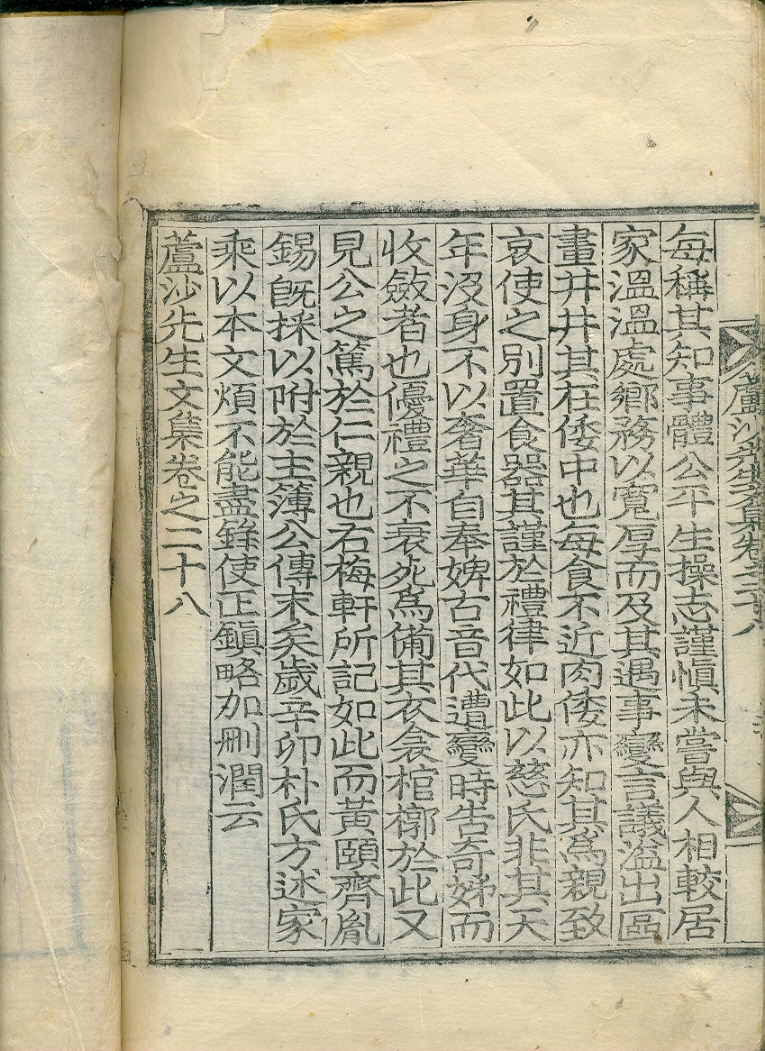 蘆沙先生文集卷之二十八
每稱其知事體公平生操志謹愼未嘗與人相較居
家溫溫處鄕務以寬厚而及其遇事變言議溢出區
畫井井其在倭中也每食不近肉倭亦知其爲親致
哀使之別置食器其謹於禮律如此以慈氏非其天
年沒身不以奢華自奉婢古音代遭變時告奇娣而
收斂者也優禮之不衰死爲備其衣衾棺槨於此又
見公之篤於仁親也石梅軒所記如此而黃頤齊胤
錫旣採以附於主簿公傳末矣歲辛卯朴氏方述家
乘以本文煩不能盡錄使正鎭略加刪潤云
蘆沙先生文集卷之二十八